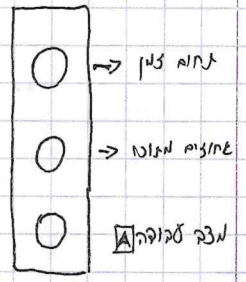 תחום זמן
אחוזים מתוכו
מצב עבודה A